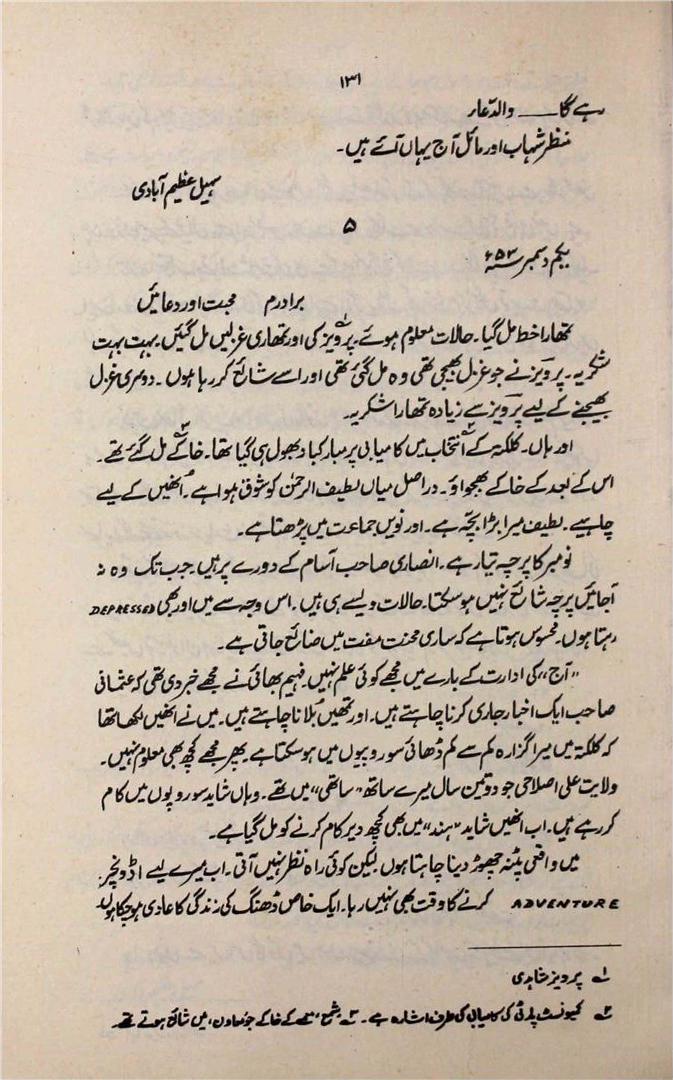 ۱۳۱
رہے گا ـــــ والدّعار
منظر شہاب اور مائل آج یہاں آئے ہیں۔
سہیل عظیم آبادی
۵
یکم دسمبر ۵۳ء
برادرم محبت اور دعائیں
تمھارا خط مل گیا۔ حالات معلوم ہوئے۔ پرویز۱ کی اور تمھاری غزلیں مل گئیں۔ بہت بہت
شکریہ۔ پرویز نے جو غزل بھیجی تھی وہ مل گئی تھی اور اسے شائع کر رہا ہوں۔ دوسری غزل
بھیجنے کے لیے پرویز سے زیادہ تمھارا شکریہ۔
اور ہاں۔ کلکتہ کے انتخاب۲ میں کامیابی پر مبارکباد بھول ہی گیا تھا۔ خاکے۳ مل گئے تھے۔
اس کے بعد کے خاکے بھجواؤ۔ دراصل میاں لطیف الرحمٰن کو شوق ہوا ہے۔ اُنھیں کے لیے
چاہیے۔ لطیف میرا بڑا بچّہ ہے۔ اور نویں جماعت میں پڑھتا ہے۔
نومبر کا پرچہ تیار ہے۔ انصاری صاحب آسام کے دورے پر ہیں۔ جب تک وہ نہ
آجائیں پرچہ شائع نہیں ہو سکتا۔ حالات ویسے ہی ہیں۔ اس وجہ سے میں اور بھی DEPRESSED
رہتا ہوں۔ محسوس ہوتا ہے کہ ساری محنت مفت میں ضائع جاتی ہے۔
"آج" کی ادارت کے بارے میں مجھے کوئی علم نہیں۔ فہیم بھائی نے مجھے خبر دی تھی کہ عثمانی
صاحب ایک اخبار جاری کرنا چاہتے ہیں۔ اور تمھیں بُلانا چاہتے ہیں۔ میں نے انھیں لکھا تھا
کہ کلکتہ میں میرا گزارہ کم سے کم ڈھائی سو روپیوں میں ہو سکتا ہے پھر مجھے کچھ بھی معلوم نہیں۔
ولایت علی اصلاحی جو دو تین سال میرے ساتھ "ساتھی" میں تھے۔ وہاں شاید سو روپوں میں کام
کر رہے ہیں۔ اب انھیں شاید "ہند" میں بھی کچھ دیر کام کرنے کو مل گیا ہے۔
میں واقعی پٹنہ چھوڑ دینا چاہتا ہوں لیکن کوئی راہ نظر نہیں آتی۔ اب میرے لیے اڈونچر
ADVENTURE کرنے کا وقت بھی نہیں رہا۔ ایک خاص ڈھنگ کی زندگی کا عادی ہو چکا ہوں
۱ پرویز شاہدی
۲ کمیونسٹ پارٹی کی کامیابی کی طرف اشارہ ہے۔ ۳ کے خاکے جو معاون، میں شائع ہوتے تھے۔